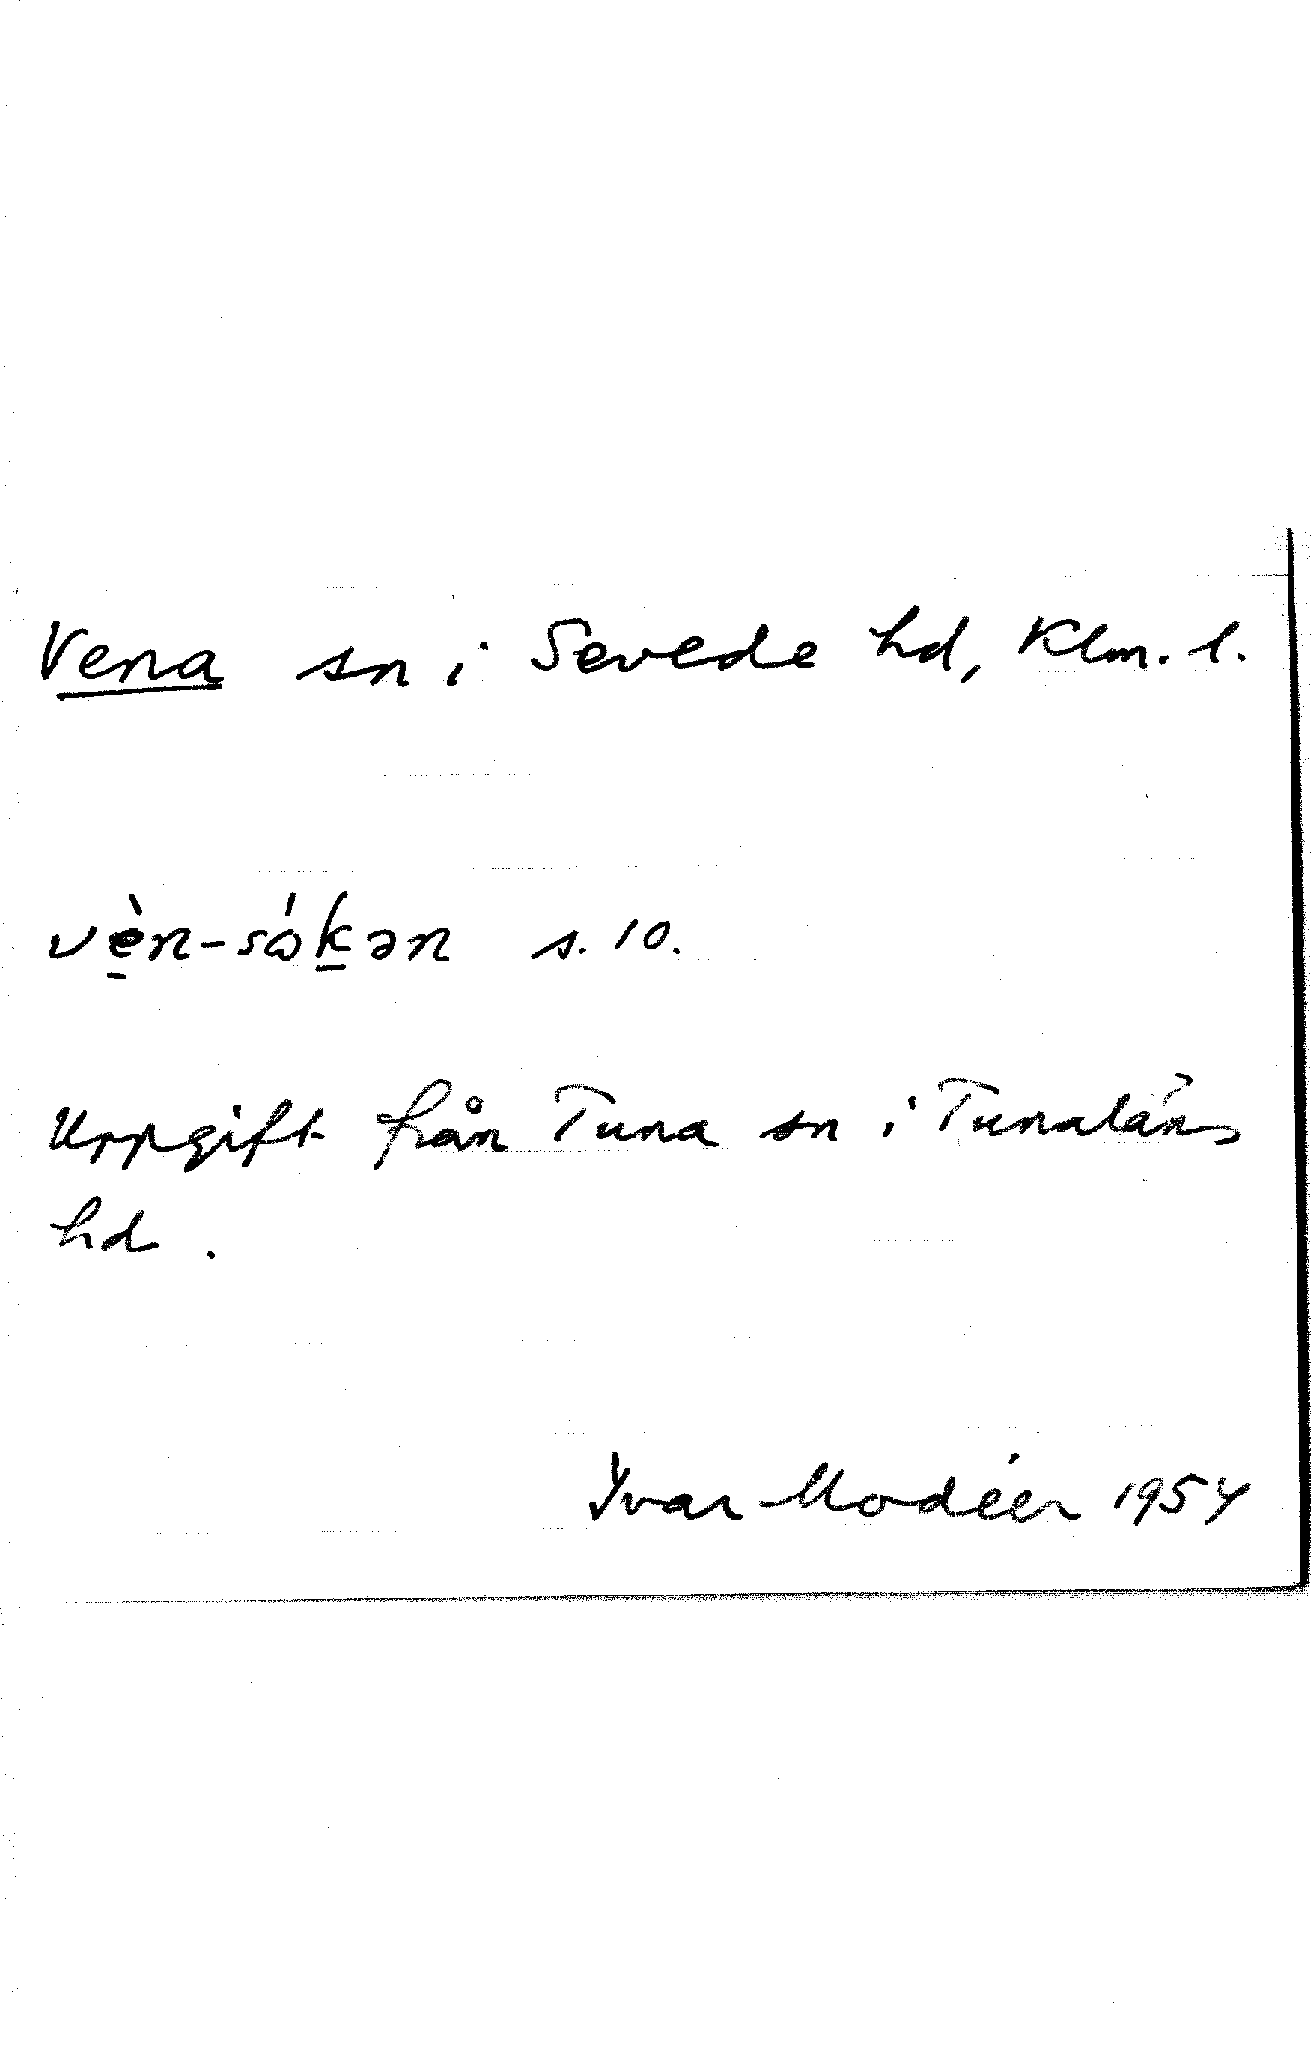 Vena sn i Sevede hd, Klm. l.
vè̱n-sɷ́ḵən s. 10.
Uppgift från Tuna sn i Tunaläns
hd.
Ivar Modéer 1954